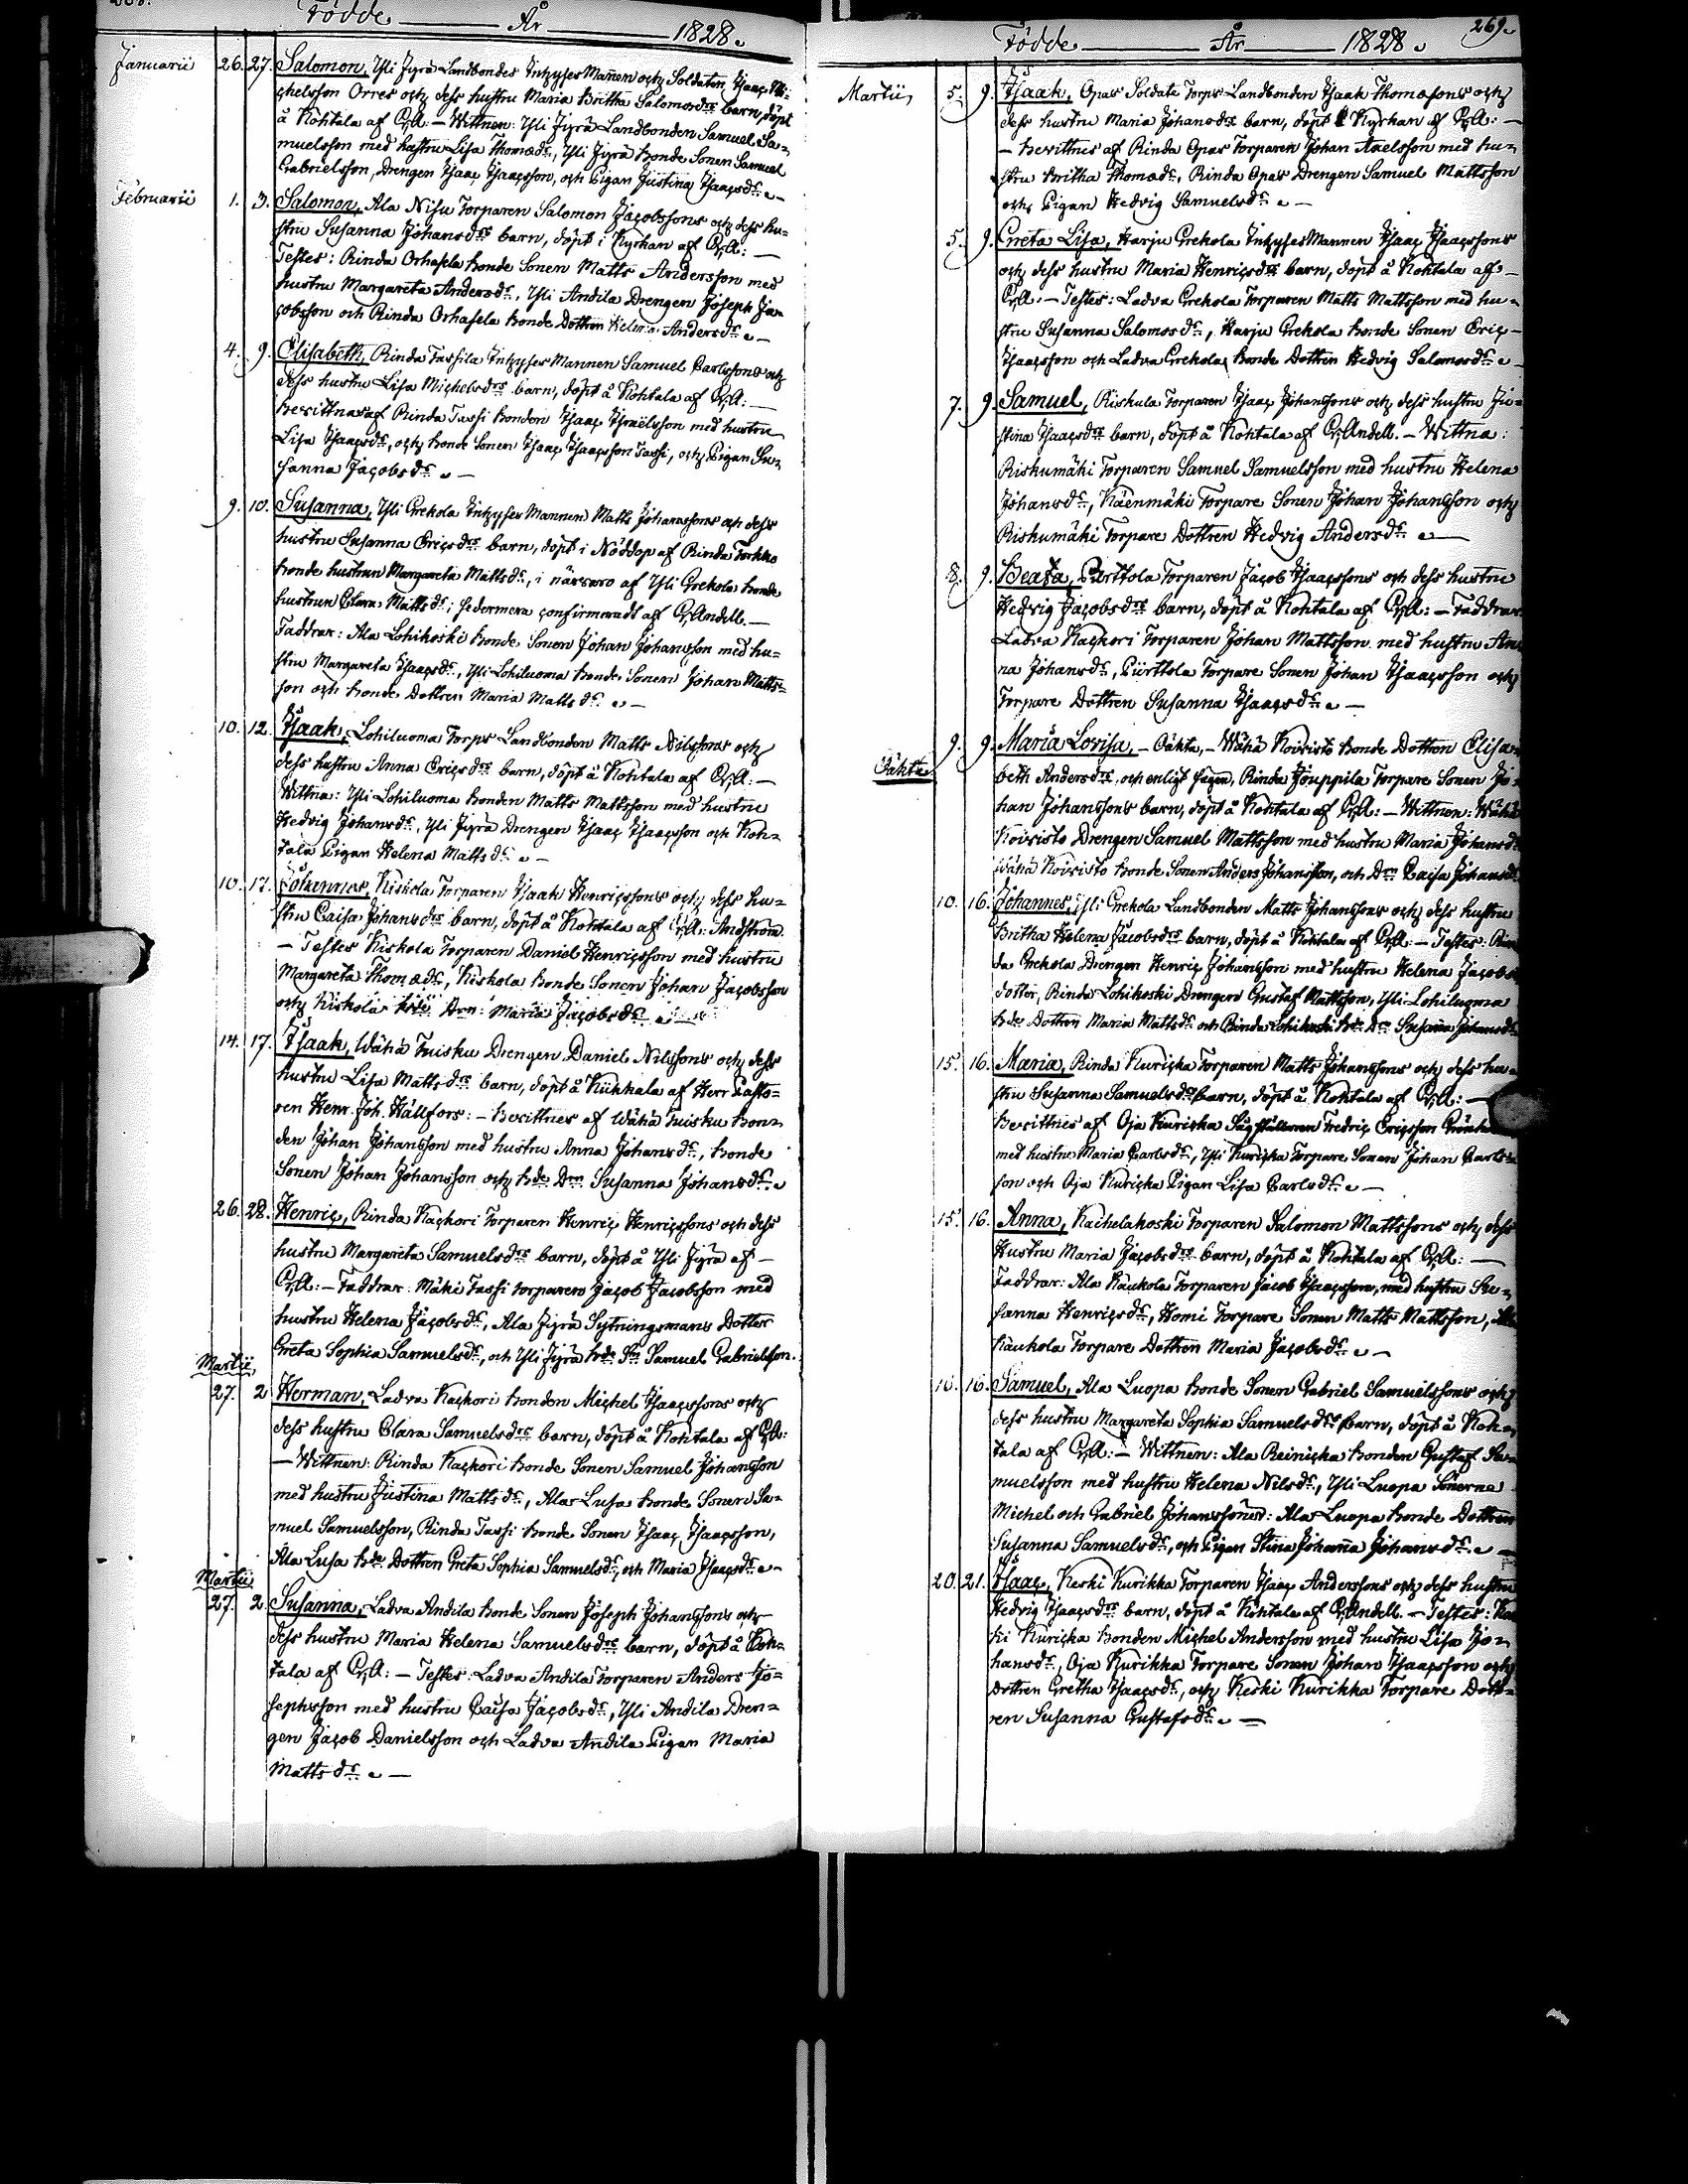 Födde År 1828.
Januarii 26. 27. Salomon, Yli Jyrä Landbondes Inhyses Mannen och Soldaten Isaac Mi-
chelsson Orres och dess hustru Maria Britha Salomonsdrs barn, döpt
å Kohtala af C.A: — Wittnen: Yli Jyrä Landbonden Samuel Sa-
muelsson med hustru Lisa Thomædr, Yli Jyrä Bonde Sonen Samuel
Gabrielsson, Drengen Isaac Isaacsson, och Pigan Justina Isaacsdr. —
Februarii 1. 3. Salomon, Ala Nisu Torparen Salomon Jacobssons och dess hu-
stru Susanna Johansdrs barn, döpt i Kyrkan af C.A: —
Testes: Rinda Orhasela Bonde Sonen Matts Andersson med
hustru Margareta Andersdr, Yli Andila Drengen Joseph Ja-
cobsson och Rinda Orhasela Bonde Dottren Helena Andersdr. —
4. 9. Elisabeth, Rinda Tassila Inhyses Mannen Samuel Carlssons och
dess hustru Lisa Michelsdrs barn, döpt å Kohtala af C.A: —
Bevittnas af Rinda Tassi Bonden Isaac Israelsson med hustru
Lisa Isaacsdr, och Bonde Sonen Isaac Isaacsson Tassi, och Pigan Su-
sanna Jacobsdr. —
9. 10. Susanna, Yli Grekola Inhyses Mannen Matts Johanssons och dess
hustru Susanna Ericsdrs barn, döpt i Nöddop af Rinda Torkko
Bonde hustrun Margareta Mattsdr, i närvaro af Yli Grekola Bonde
hustrun Clara Mattsdr; sedermera confirmeradt af C. Andell. —
Faddrar: Ala Lohikoski Bonde Sonen Johan Johansson med hu-
stru Margareta Isaacsdr, Yli Lohiluoma Bonde Sonen Johan Matts-
son och Bonde Dottren Maria Mattsdr. —
10. 12. Isaak, Lohiluoma Torps Landbonden Matts Nilssons och
dess hustru Anna Ericsdrs barn, döpt å Kohtala af C.A: —
Wittna: Yli Lohiluoma Bonden Matts Mattsson med hustru
Hedvig Johansdr, Yli Jyrä Drengen Isaac Isaacsson och Koh-
tala Pigan Helena Mattsdr. —
10. 17. Johannes, Kiskola Torparen Isaak Henricssons och dess hu-
stru Caisa Johansdrs barn, döpt å Kohtala af C.A: Andström
— Testes Kiskola Torparen Daniel Henricsson med hustru
Margareta Thomædr, Kiskola Bonde Sonen Johan Jacobsson
och Kiskola Dtrn: Maria Jacobsdr. —
14. 17. Isaak, Wähä Tuisku Drengen Daniel Nilssons och dess
hustru Lisa Mattsdrs barn, döpt å Kiikkala af Herr Pasto-
ren Henr. Joh. Hällfors: — Bevittnes af Wähä Tuisku Bon-
den Johan Johansson med hustru Anna Johansdr, Bonde
Sonen Johan Johansson och Bde Drn Susanna Johansdr.
26. 28. Henric, Rinda Kackori Torparen Henric Henricssons och dess
hustru Margareta Samuelsdrs barn, döpt å Yli Jyrä af —
C.A: — Faddrar: Mäki Tassi torparen Jacob Jacobsson med
hustru Helena Jacobsdr, Ala Jyrä Sytningsmans Dotter
Greta Sophia Samuelsdr, och Yli Jyrä Bde Sn Samuel Gabrielsson.
Martii
27. 2 Herman, Ladva Kackori Bonden Michel Isaacssons och
dess hustru Clara Samuelsdrs barn, döpt å Kohtala af C.A:
— Wittnen: Rinda Kackori Bonde Sonen Samuel Johansson
med hustru Justina Mattsdr, Ala Lusa Bonde Sonen Sa-
muel Samuelsson, Rinda Tassi Bonde Sonen Isaac Isaacsson,
Ala Lusa Bde Dottren Greta Sophia Samuelsdr, och Maria Isaacsdr. —
Martii
27. 2. Susanna, Ladva Andila Bonde Sonen Joseph Johanssons och
dess hustru Maria Helena Samuelsdrs barn, döpt å Koh-
tala af C.A: — Testes: Ladva Andila Torparen Anders Jo-
sephsson med hustru Caisa Jacobsdr, Yli Andila Dren-
gen Jacob Danielsson och Ladva Andila Pigan Maria
Mattsdr. —
Födde År 1828. 269.
Martii 5. 9. Isaak, Opas Soldate Torps Landbonden Isaak Thomæsons och
dess hustru Maria Johansdrs barn, döpt i Kyrkan af C.A: —
— Bevittnes af Rinda Opas Torparen Johan Axelsson med hu-
stru Britha Thomædr, Rinda Opas Drengen Samuel Mattsson
och Pigan Hedvig Samuelsdr. —
5. 9. Greta Lisa, Harju Grekola Inhyses Mannen Isaac Isaacssons
och dess hustru Maria Henricsdrs barn, döpt å Kohtala af —
C.A. — Testes: Ladva Grekola Torparen Matts Mattsson med hu-
stru Susanna Salomonsdr, Harju Grekola Bonde Sonen Eric
Isaacsson och Ladva Grekola Bonde Dottren Hedvig Salomonsdr. —
7. 9. Samuel, Riskula Torparen Isaac Johanssons och dess hustru Ju-
stina Isaacsdrs barn, döpt å Kohtala af C. Andell. — Wittna:
Riskumäki Torparen Samuel Samuelsson med hustru Helena
Johansdr, Käenmäki Torpare Sonen Johan Johansson och
Riskumäki Torpare Dottren Hedvig Andersdr. —
8. 9. Beata, Pürttola Torparen Jacob Isaacssons och dess hustru
Hedvig Jacobsdrs barn, döpt å Kohtala af C.A: — Faddrar
Ladva Kackori Torparen Johan Mattsson med hustru An
na Johansdr, Pürttola Torpare Sonen Johan Isaacsson och
Torpare Dottren Susanna Isaacsdr. —
Oäkta 9. 9. Maria Lovisa, — Oäkta, — Wähä Koivisto Bonde Dottren Elisa-
beth Andersdrs, och enligt sägen, Rinda Jouppila Torpare Sonen Jo-
han Johanssons barn, döpt å Kohtala af C.A: — Wittnen: Wähä
Koivisto Drengen Samuel Mattsson med hustru Maria Johansdr
Wähä Koivisto Bonde Sonen Anders Johansson, och Drn Caisa Johansdr
10. 16. Johannes, Yli Grekola Landbonden Matts Johanssons och dess hustru
Britha Helena Jacobsdrs barn, döpt å Kohtala af C.A: — Testes: Rin
da Grekola Drengen Henric Johansson med hustru Helena Jacobs
dotter, Rinda Lohikoski Drengen Gustaf Mattsson, Yli Lohiluoma
Bde Dottren Maria Mattsdr och Rinda Lohikoski Bde Drn Susanna Johansdr
15. 16. Maria, Rinda Kuricka Torparen Matts Johanssons och dess hu-
stru Susanna Samuelsdrs barn, döpt å Kohtala af C.A: —
Bevittnes af Oja Kuricka Sågställaren Fredric Ericsson
med hustru Maria Carlsdr, Yli Kuricka Torpare Sonen Johan Carls-
son och Oja Kuricka Pigan Lisa Carlsdr. —
15. 16. Anna, Kachelakoski Torparen Salomon Mattssons och dess
Hustru Maria Jacobsdrs barn, döpt å Kohtala af C.A: —
Faddrar: Ala Käukola Torparen Jacob Isaacsson, med hustru Su-
sanna Henricsdr, Homi Torpare Sonen Matts Mattsson,
Käukola Torpare Dottren Maria Jacobsdr. —
16. 16. Samuel, Ala Luopa Bonde Sonen Gabriel Samuelssons och
dess hustru Margareta Sophia Samuelsdrs barn, döpt å Koh-
tala af C.A: — Wittnen: Ala Reinicka Bonden Gustaf Sa-
muelsson med hustru Helena Nilsdr, Yli Luopa Sönerne
Michel och Gabriel Johanssöner: Ala Luopa Bonde Dottren
Susanna Samuelsdr, och Pigan Stina Johanna Johansdr. —
20. 21. Isaac, Keski Kurikka Torparen Isaac Anderssons och dess hustru
Hedvig Isaacsdrs barn, döpt å Kohtala af C. Andell. — Testes:
ki Kuricka Bonden Michel Andersson med hustru Lisa Jo-
hansdr, Oja Kurikka Torpare Sonen Johan Isaacsson och
Dottren Gretha Isaacsdr, och Keski Kurikka Torpare Dott-
ren Susanna Gustafsdr. —